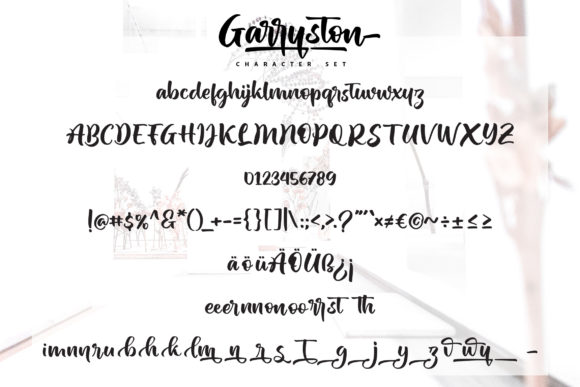 Garryston
CHARACTER SET
abcdefghijklmnopqrstuvwxyz
ABCDEFGHIJKLMNOPQRSTUVWXYZ
0123456789
!@#$%^&*()_+-={}[]|\:;<,>.?"'`×≠€©~÷±≤≥
äöüÄÖÜß¿¡
eeernnonoorrst th
imnnru b h k d m n r s T g j y z v w y -